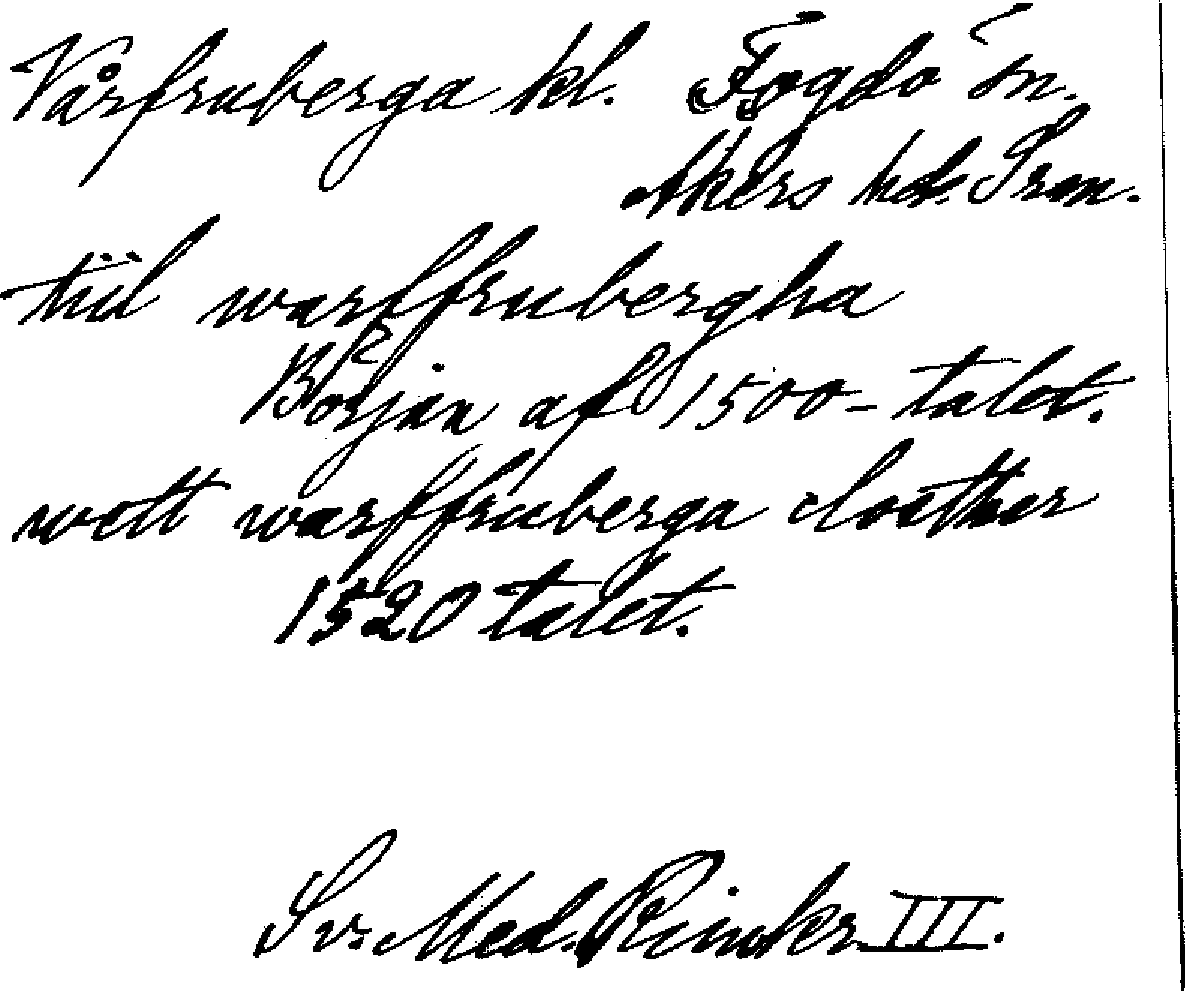 Vårfruberga kl. Fogdö sn.
Åkers hd. Srm.
tiil warffrubergha
Början af 1500-talet.
wett warffruberga closther
1520 talet.
Sv. Med. Rimkr III.